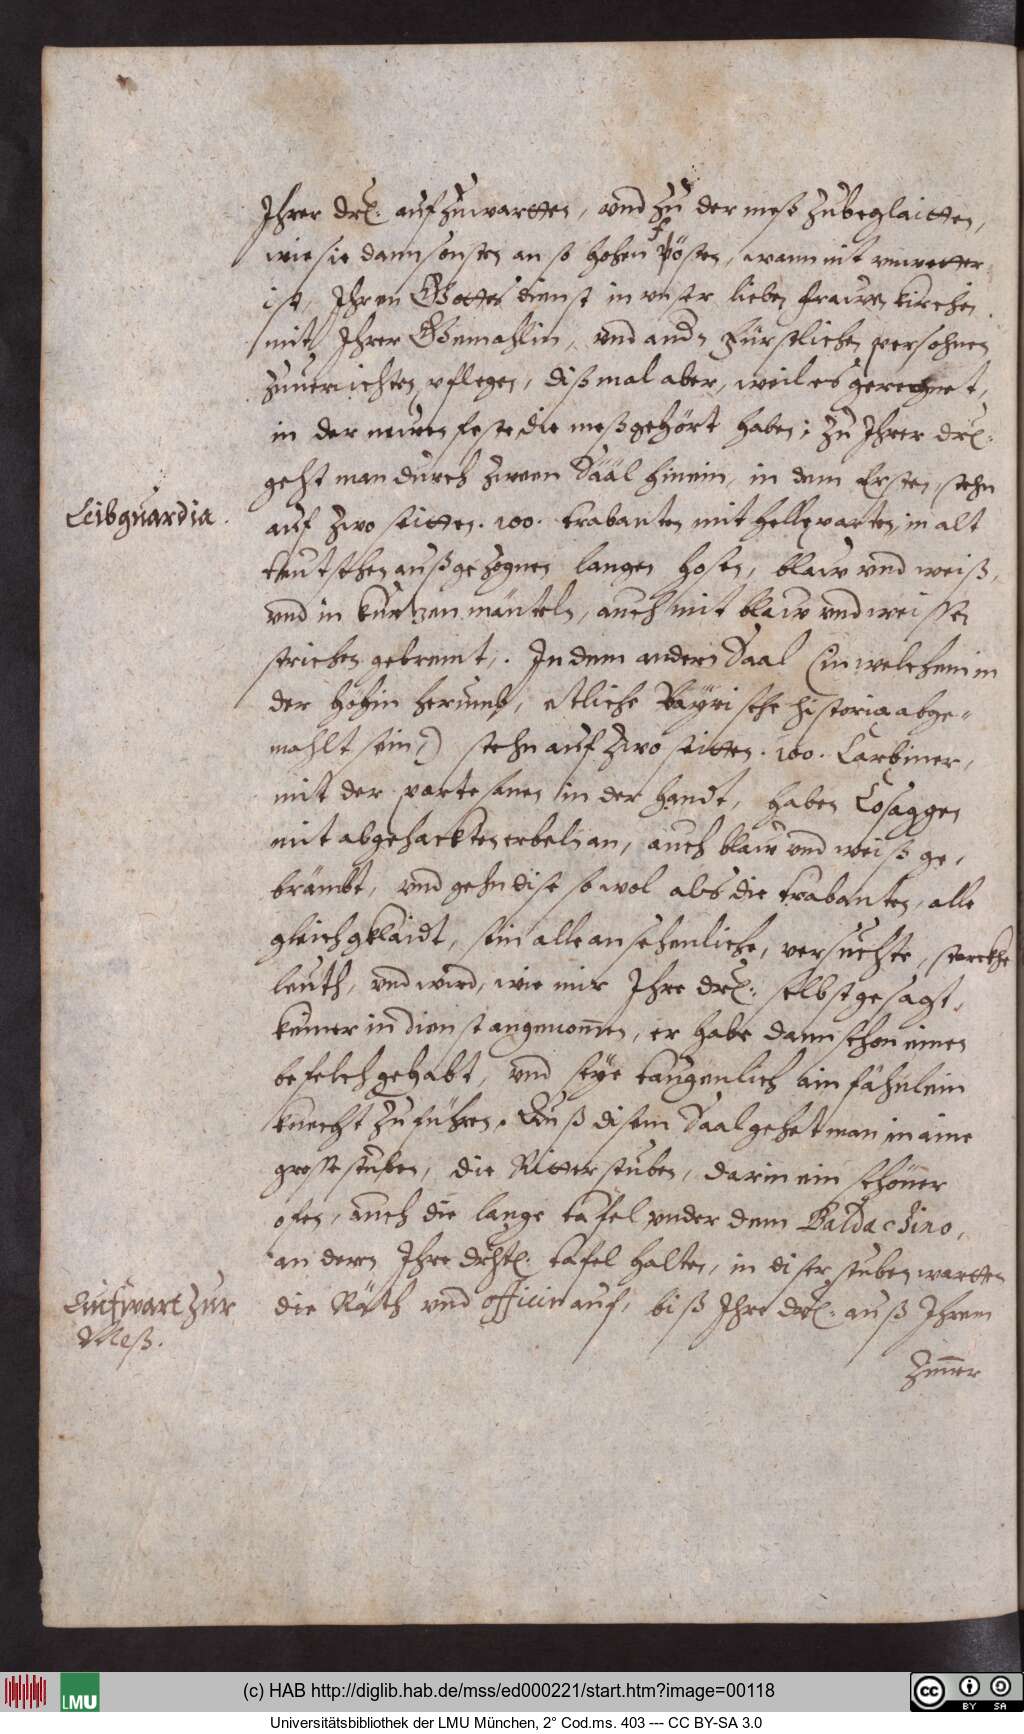 Ihrer drl: auffzuwartten, vnd zu der meß zubeglaitten,
wie sie dann sonsten an so hohen fösten, wann nit vnwetter
ist, Ihren Gottes dienst in vnser lieben frawen kirchen
mit Ihrer Gemahlin, vnd andn fürstlichen persohnen
zuuerrichten pflegen, dißmal aber, weil es geregnet,
in der neuen feste die meß gehört haben; Zu Ihrer drl:
geht man durch zween Sääl hinein, in dem Ersten, stehn
Leibguardia.
auf zwo seitten .100. trabanten mit helleparten, in alt
teutschen außgezognen langen hosen, blaw vnd weiß,
vnd in kurtzen mänteln, auch mit blaw vnd weissen
strichen gebremt,. In dem andern Saal (in welchem in
der höhin herumb, etliche Bayrische historia abge-
mahlt sein,) stehn auf zwo seitten .100. Carbiner,
mit der partesanen in der handt, haben Cosaggen
mit abgehackten erbeln an, auch blaw vnd weiß ge,
brämbt, vnd gehn dise so wol als die trabanten, alle
gleich gklaidt, sein alle ansehenliche, versuchte, starckhe
leuth, vnd wird, wie mir Ihre drl: selbst gesagt,
keiner in dienst angenom̄en, er habe dann schon einen
befelch gehabt, vnd seye taugenlich ain fähnlein
knecht zu führen. Auß disem Saal gehet man in aine
grosse stuben, die Ritterstuben, darin ein schöner
ofen, auch die lange tafel vnder dem Baldachino,
an deren Ihre drhtl: tafel halten, in diser stuben wartten
Aufwart zur
Meß.
die Räth vnd officirn auf, biß Ihre drl: auß Ihrem
Zim̄er
(c) HAB http://diglib.hab.de/mss/ed000221/start.htm?image=00118
LMU
BY SA
Universitätsbibliothek der LMU München, 2° Cod.ms. 403 --- CC BY-SA 3.0